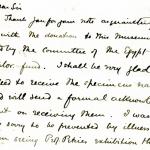 Dear Sir
Thank you for your note acquainting
with the donation to this Museum
by the Committee of the Egypt
Explor. fund. I shall be very glad
to receive the specimens
and will send a formal
on receiving them. I was
sorry to be prevented by illness
seeing Prof Petrie's exhibition